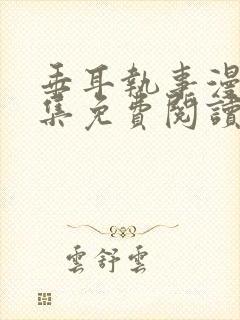 垂耳執事漫
集免費閱讀
雲舒雲